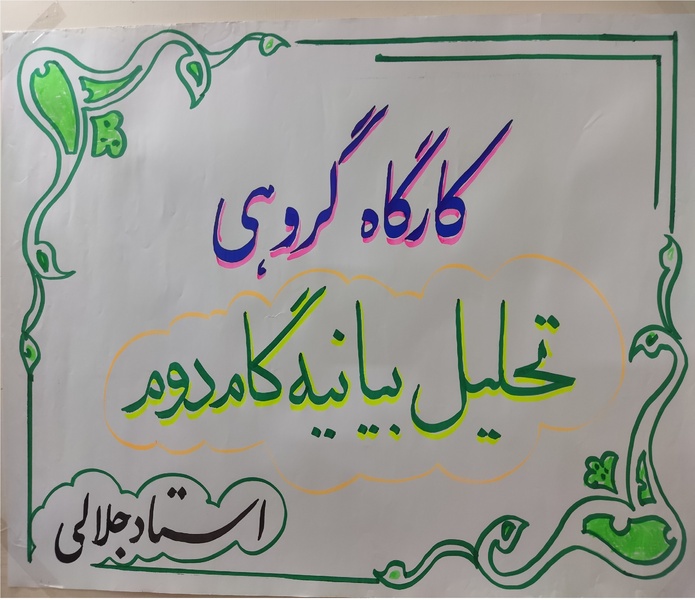 کارگاه گروهی
تحلیل بیانیه گام دوم
استاد جلالی